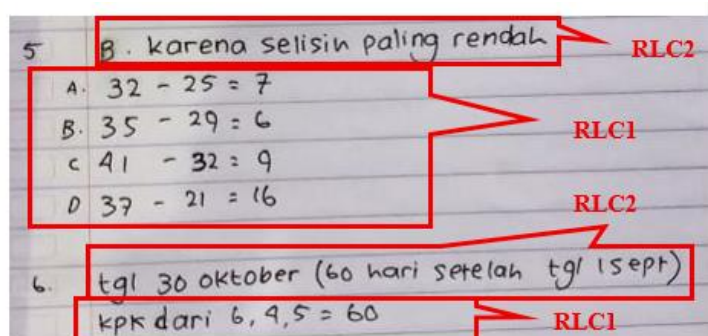 5 B. karena selisih paling rendah RLC2
A. 32 - 25 = 7
B. 35 - 29 = 6 RLC1
C 41 - 32 = 9
D 37 - 21 = 16 RLC2
6. tgl 30 oktober (60 hari setelah tgl 1 sept)
kpk dari 6, 4, 5 = 60 RLC1